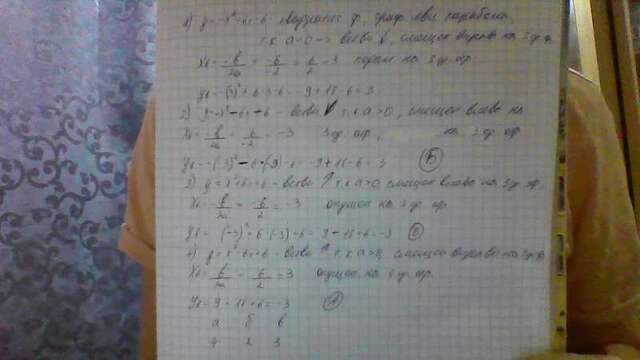 1) y=-x²+6x-6 - квадратич. ф., граф. явл. парабола,
т.к. a<0 => ветви ↓, смещен вправо на 3 ед.
x₀ = -b/2a = -6/-2 = 6/2 = 3 поднят на 3 ед.
y₀ = -(3)²+6·3-6 = -9+18-6=3
2) y=-x²-6x-6 - ветви ↓ т.к. a<0, смещен влево на
x₀ = -b/2a = 6/-2 = -3 3 ед. на 3 ед.
y₀ = -(-3)²-6·(-3)-6 = -9+18-6=3 (б)
3) y=x²+6x+6 - ветви ↑ т.к. a>0, смещен влево на 3 ед.
x₀ = -b/2a = -6/2 = -3 опущен на 3 ед.
y₀ = (-3)²+6·(-3)+6 = 9-18+6=-3 (в)
4) y=x²-6x+6 - ветви ↑ т.к. a>0, смещен вправо на 3 ед.
x₀ = -b/2a = 6/2 = 3 опущен на 3 ед.
y₀ = 9-18+6=-3 (а)
а б в
4 2 3